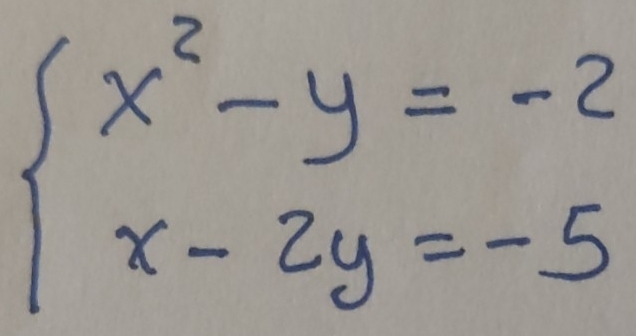 x² - y = -2
x - 2y = -5